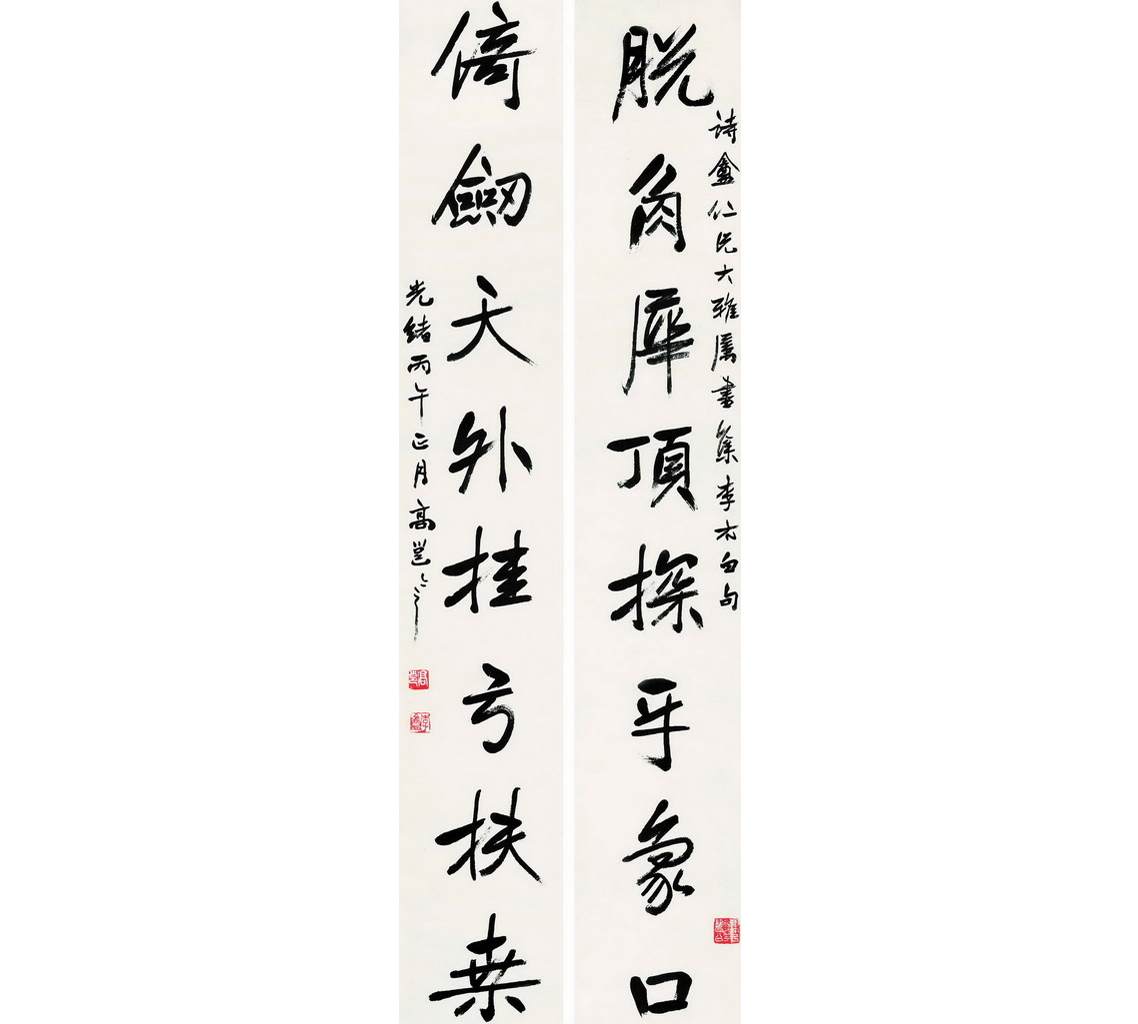 脱角犀頂探牙象口
詩盦仁兄大雅屬書集李太白句
倚劒天外挂弓扶桒
光緒丙午正月高邕之
高邕
李盦